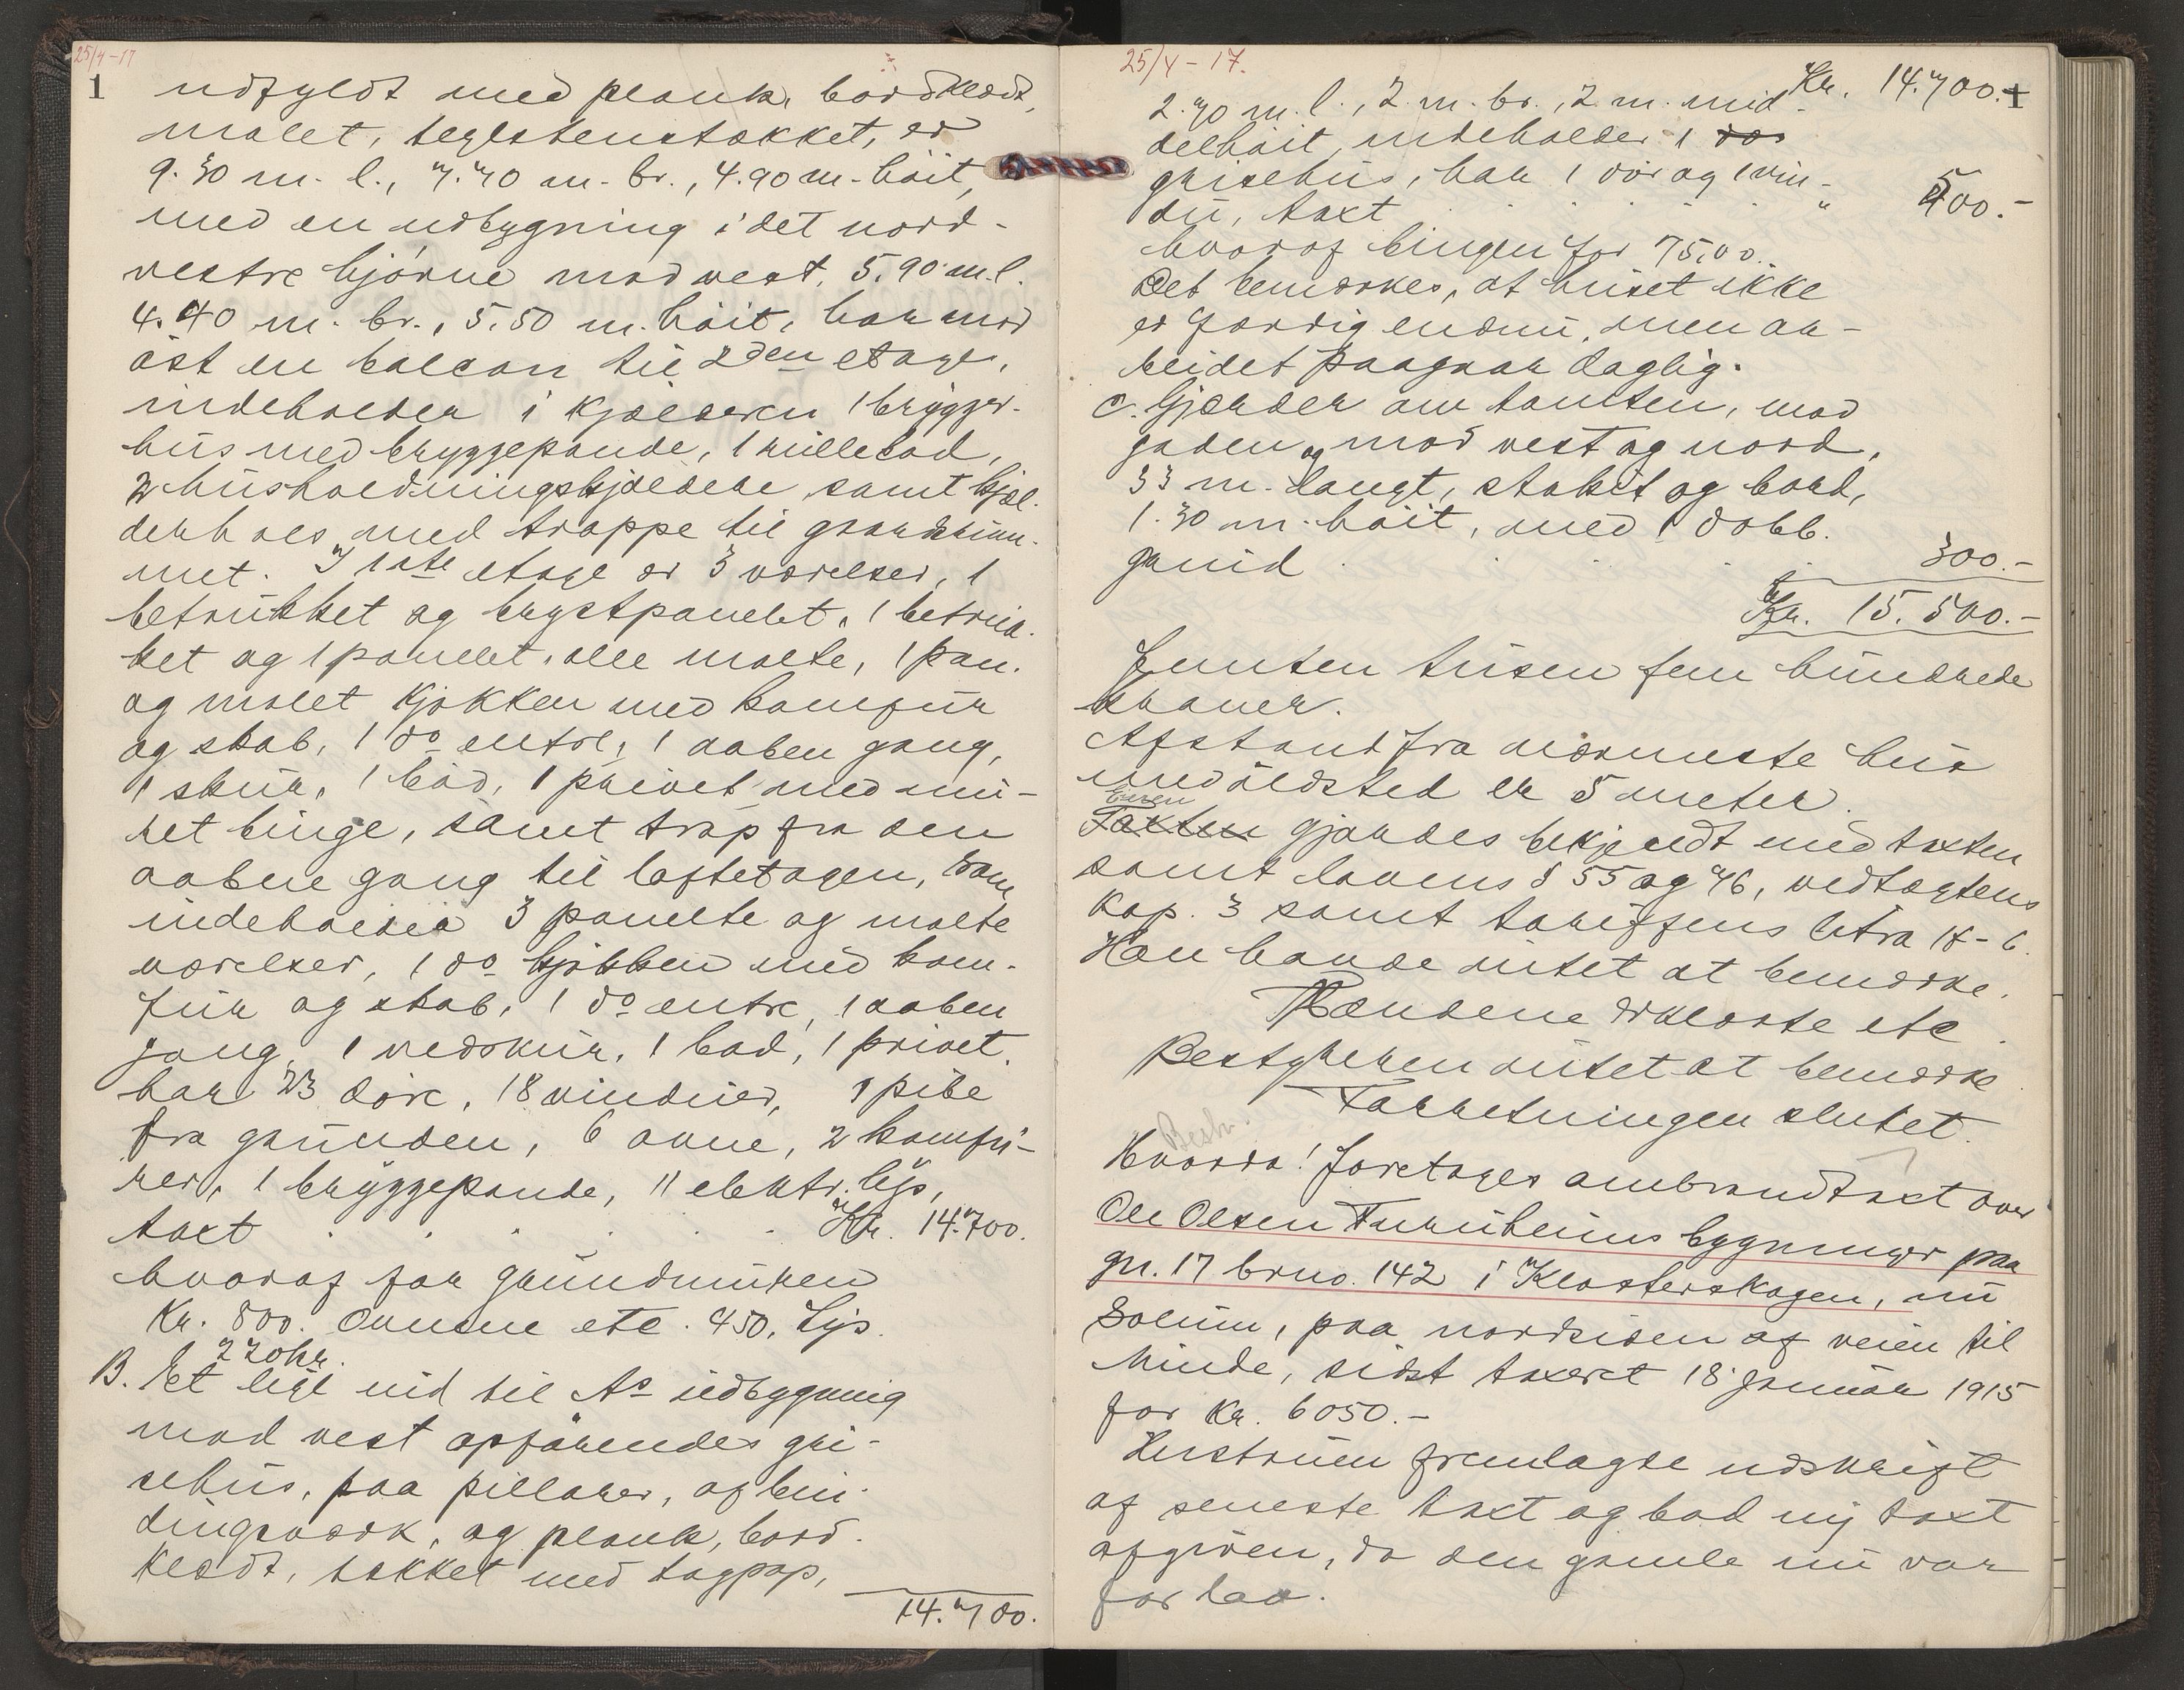 25/4-17
1
udfyldt med plank, bordklædt,
malet, teglstenstækket, er
9.30 m. l., 7.70 m. br., 4.90 m. høit,
med en udbygning i det nord-
vestre hjørne mod vest, 5.90 m. l.
4.40 m. br., 5.50 m. høit, har mod
øst en balcon til 2den etage,
indeholder i kjælderen 1 brygger-
hus med bryggepande, 1 rullebod,
2 husholdningskjældere samt kjæl-
derhals med trappe til gaardsrum-
met. I 1ste etage er 3 værelser, 1
betrukket og brystpanelet, 1 betruk-
ket og 1 panelet, alle malte, 1 pan.
og malet kjøkken med komfur
og skab, 1 do entre, 1 aaben gang,
1 skur, 1 bod, 1 privet med mu-
ret binge, samt trap fra den
aabne gang til loftetagen, som
indeholder 3 panelte og malte
værelser, 1 do kjøkken med kom-
fur og skab, 1 do entre, 1 aaben
gang, 1 vedskur, 1 bod, 1 privet,
har 23 døre, 18 vinduer, 1 pibe
fra grunden, 6 ovne, 2 komfu-
rer, 1 bryggepande, 11 elektr. lys,
taxt . . . . . Kr. 14.700.
hvoraf for grundmuren
Kr. 800. Ovnene etc. 450, Lys
220 kr.
B. Et lige ind til As udbygning
mod vest opførendes gri-
sehus, paa pillarer, af bin-
dingsværk, og plank, bord-
klædt, tækket med tagpap,
14.700.
25/4-17.
Kr. 14.700.- 1
2.70 m. l., 2 m. br., 2 m. mid-
delhøit, indeholder 1 do
grisehus, har 1 dør og 1 vin-
du, taxt . . . . . " 500.-
hvoraf bingen for 75,00.
Det bemærkes, at huset ikke
er færdig endnu, men ar-
beidet paagaar daglig.
C. Gjærder om tomten, mod
gaden og mod vest og nord,
33 m. langt, stakit og bord,
1.30 m. høit, med 1 dobb.
grind . . . . 300.-
Kr. 15.500.-
Femten tusen fem hundrede
kroner.
Afstand fra nærmeste hus
med ildsted er 5 meter.
Eieren
Taxten gjordes bekjendt med taxten
samt lovens § 55 og 76, vedtægtens
Kap. 3 samt tariffens litra 1f-6.
Han havde intet at bemærke.
Mændene erklærte etc.
Bestyreren intet at bemærke.
Forretningen sluttet.
Bestr.
Hvorda! foretages ombrandtaxt over
Ole Olsen Furuheims bygninger paa
gn. 17 brno. 142 i Klosterskogen, nu
Solum, paa nordsiden af veien til
Minde, sidst taxeret 18 januar 1915
for Kr. 6050.-
Hustruen fremlagde udskrift
af seneste taxt og bad ny taxt
afgiven, da den gamle nu var
for lav.